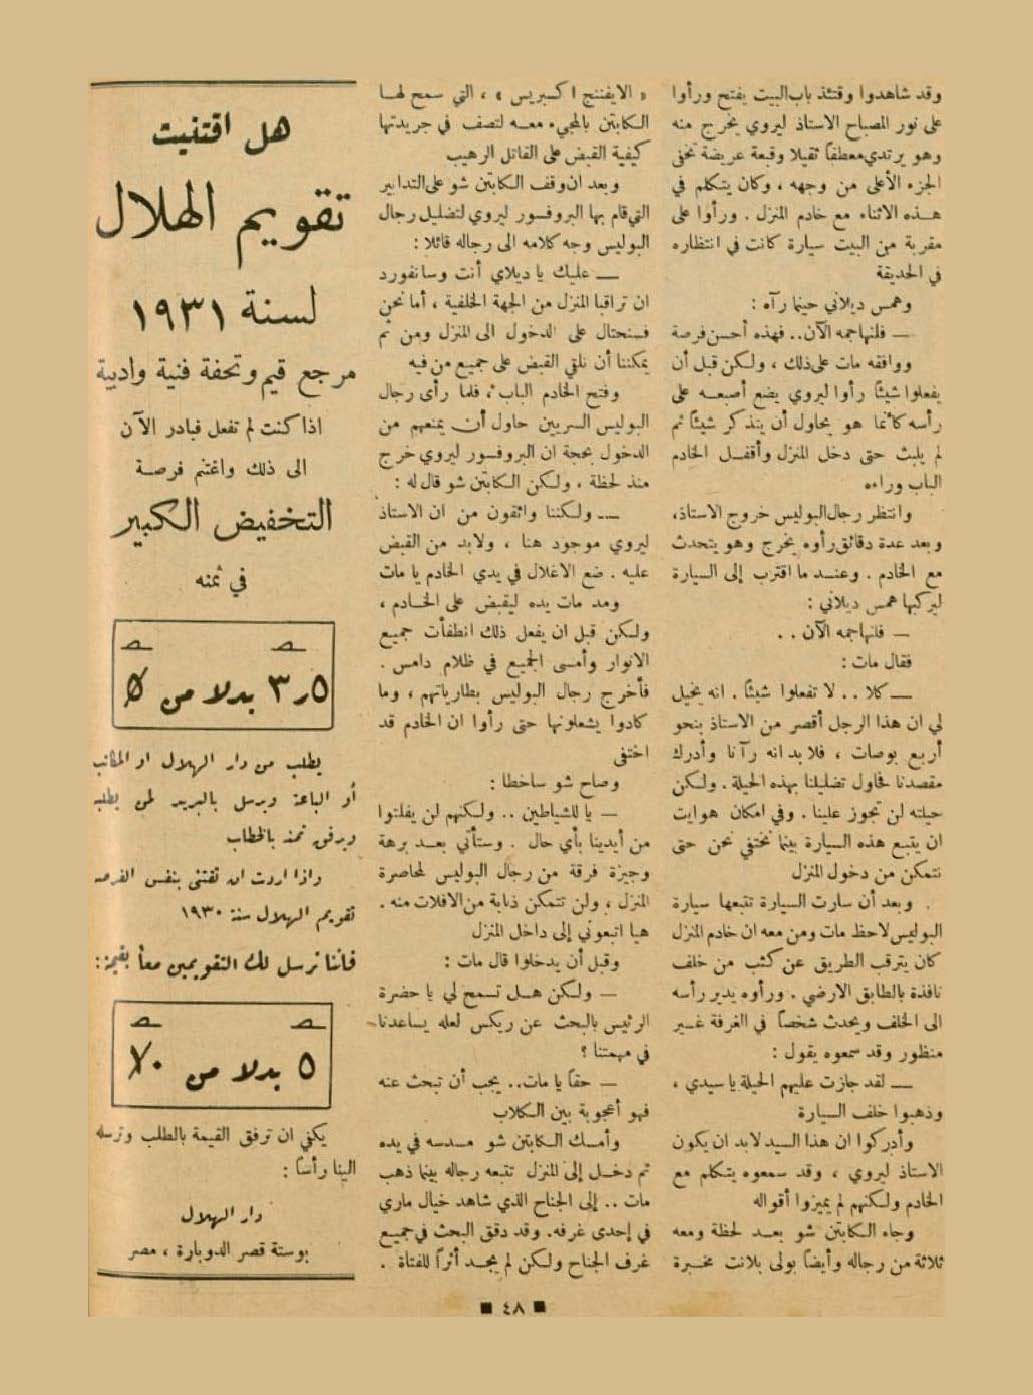 وقد شاهدوا وقتئذ باب البيت يفتح ورأوا
على نور المصباح الاستاذ ليروي يخرج منه
وهو يرتدي معطفاً ثقيلا وقبعة عريضة تخفي
الجزء الأعلى من وجهه ، وكان يتكلم في
هذه الاثناء مع خادم المنزل . ورأوا على
مقربة من البيت سيارة كانت في انتظاره
في الحديقة
وهمس ديلاني حينما رآه :
— فلنهاجمه الآن.. فهذه أحسن فرصة
ووافقه مات على ذلك ، ولكن قبل أن
يفعلوا شيئاً رأوا ليروي يضع أصبعه على
رأسه كأنما هو يحاول أن يتذكر شيئاً ثم
لم يلبث حتى دخل المنزل وأقفل الخادم
الباب وراءه
وانتظر رجال البوليس خروج الاستاذ،
وبعد عدة دقائق رأوه يخرج وهو يتحدث
مع الخادم . وعند ما اقترب إلى السيارة
ليركبها همس ديلاني :
— فلنهاجمه الآن . .
فقال مات :
— كلا . . لا تفعلوا شيئاً . انه يخيل
لي ان هذا الرجل أقصر من الاستاذ بنحو
أربع بوصات ، فلا بد انه رآنا وأدرك
مقصدنا فحاول تضليلنا بهذه الحيلة . ولكن
حيلته لن تجوز علينا . وفي امكان هوايت
ان يتبع هذه السيارة بينما نختفي نحن حتى
نتمكن من دخول المنزل
وبعد أن سارت السيارة تتبعها سيارة
البوليس لاحظ مات ومن معه ان خادم المنزل
كان يترقب الطريق عن كثب من خلف
نافذة بالطابق الارضي . ورأوه يدير رأسه
الى الخلف ويحدث شخصاً في الغرفة غير
منظور وقد سمعوه يقول :
— لقد جازت عليهم الحيلة يا سيدي ،
وذهبوا خلف السيارة
وأدركوا ان هذا السيد لابد ان يكون
الاستاذ ليروي ، وقد سمعوه يتكلم مع
الخادم ولكنهم لم يميزوا أقواله
وجاء الكابتن شو بعد لحظة ومعه
ثلاثة من رجاله وأيضاً بولى بلانت مخبرة
« الايفننج اكسبريس » ، التي سمح لها
الكابتن بالمجيء معه لتصف في جريدتها
كيفية القبض على القاتل الرهيب
وبعد ان وقف الكابتن شو على التدابير
التي قام بها البروفسور ليروي لتضليل رجال
البوليس وجه كلامه الى رجاله قائلا :
— عليك يا ديلاي أنت وسانفورد
ان تراقبا المنزل من الجهة الخلفية ، أما نحن
فسنحتال على الدخول الى المنزل ومن ثم
يمكننا أن نلقي القبض على جميع من فيه
وفتح الخادم الباب ، فلما رأى رجال
البوليس السريين حاول أن يمنعهم من
الدخول بحجة ان البروفسور ليروي خرج
منذ لحظة ، ولكن الكابتن شو قال له :
— ولكننا واثقون من ان الاستاذ
ليروي موجود هنا ، ولابد من القبض
عليه . ضع الاغلال في يدي الخادم يا مات
ومد مات يده ليقبض على الخادم ،
ولكن قبل ان يفعل ذلك انطفأت جميع
الانوار وأمسى الجميع في ظلام دامس .
فأخرج رجال البوليس بطارياتهم ، وما
كادوا يشعلونها حتى رأوا ان الخادم قد
اختفى
وصاح شو ساخطا :
— يا للشياطين .. ولكنهم لن يفلتوا
من أيدينا بأي حال . وستأتي بعد برهة
وجيزة فرقة من رجال البوليس لمحاصرة
المنزل ، ولن تتمكن ذبابة من الافلات منه .
هيا اتبعوني إلى داخل المنزل
وقبل أن يدخلوا قال مات :
— ولكن هل تسمح لي يا حضرة
الرئيس بالبحث عن ريكس لعله يساعدنا
في مهمتنا ؟
— حقاً يا مات.. يجب أن تبحث عنه
فهو أعجوبة بين الكلاب
وأمسك الكابتن شو مسدسه في يده
ثم دخل إلى المنزل تتبعه رجاله بينما ذهب
مات .. إلى الجناح الذي شاهد خيال ماري
في إحدى غرفه. وقد دقق البحث في جميع
غرف الجناح ولكن لم يجد أثراً للفتاة .
هل اقتنيت
تقويم الهلال
لسنة ١٩٣١
مرجع قيم وتحفة فنية وادبية
اذا كنت لم تفعل فبادر الآن
الى ذلك واغتنم فرصة
التخفيض الكبير
في ثمنه
٣٫٥ بدلا من ٥
يطلب من دار الهلال او المكاتب
أو الباعة ويرسل بالبريد لمن يطلبه
ويرفق ثمنه بالخطاب
واذا اردت ان تقتني بنفس الفرصة
تقويم الهلال سنة ١٩٣٠
فاننا نرسل لك التقويمين معاً بقيمة:
٥ بدلا من ١٠
يكفي ان ترفق القيمة بالطلب وترسله
الينا رأساً :
دار الهلال
بوستة قصر الدوبارة ، مصر
■ ٤٨ ■